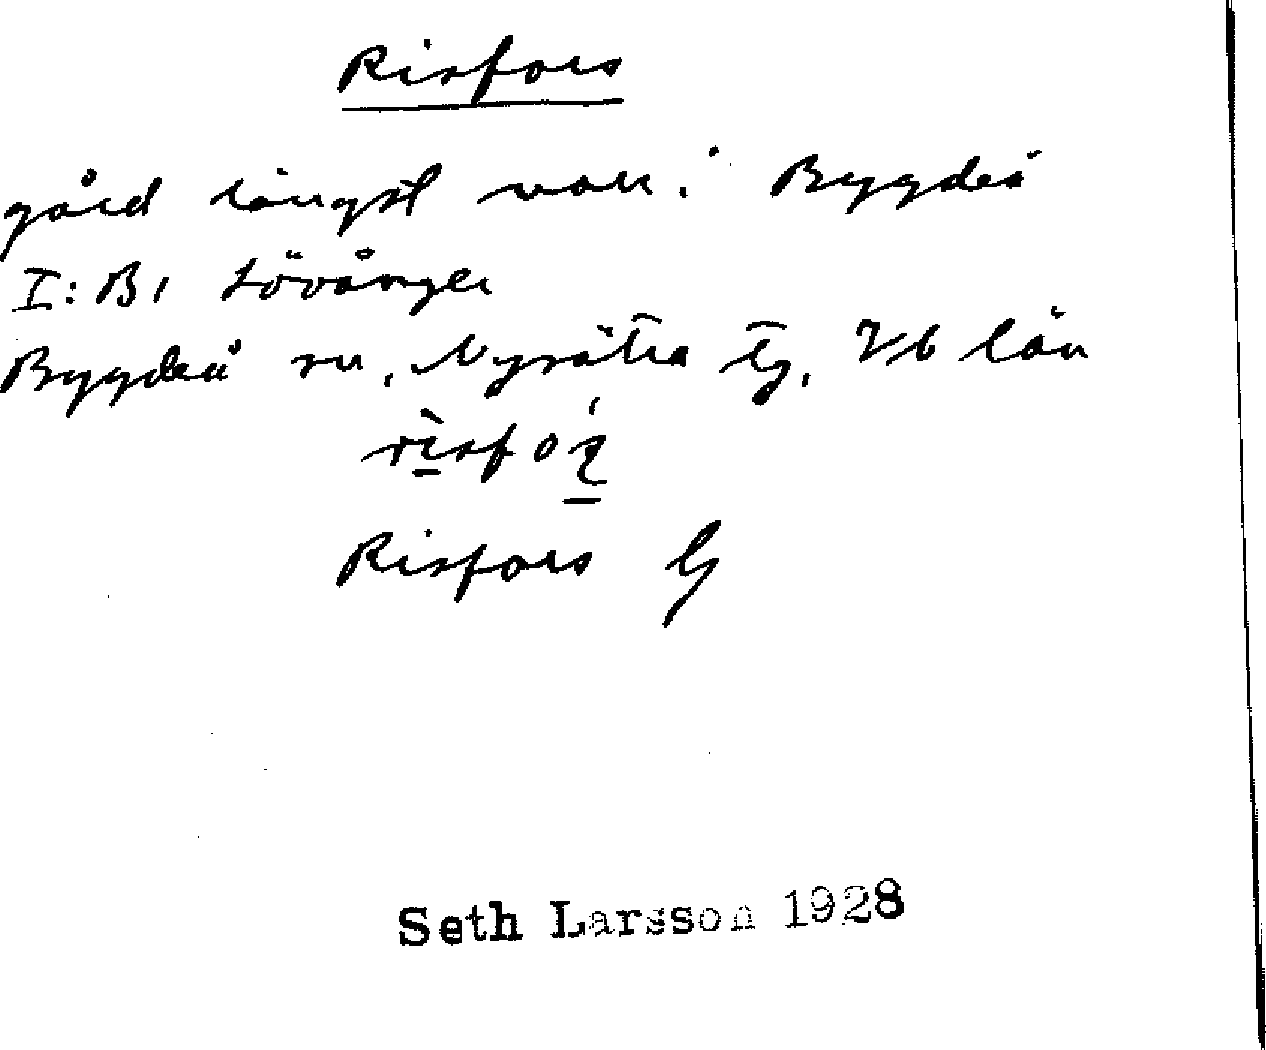 Risfors
gård längst norr i Bygdeå
I: B1 Lövånger
Bygdeå sn, Nysätra tg, Vb län
Risfors G
Seth Larsson 1928